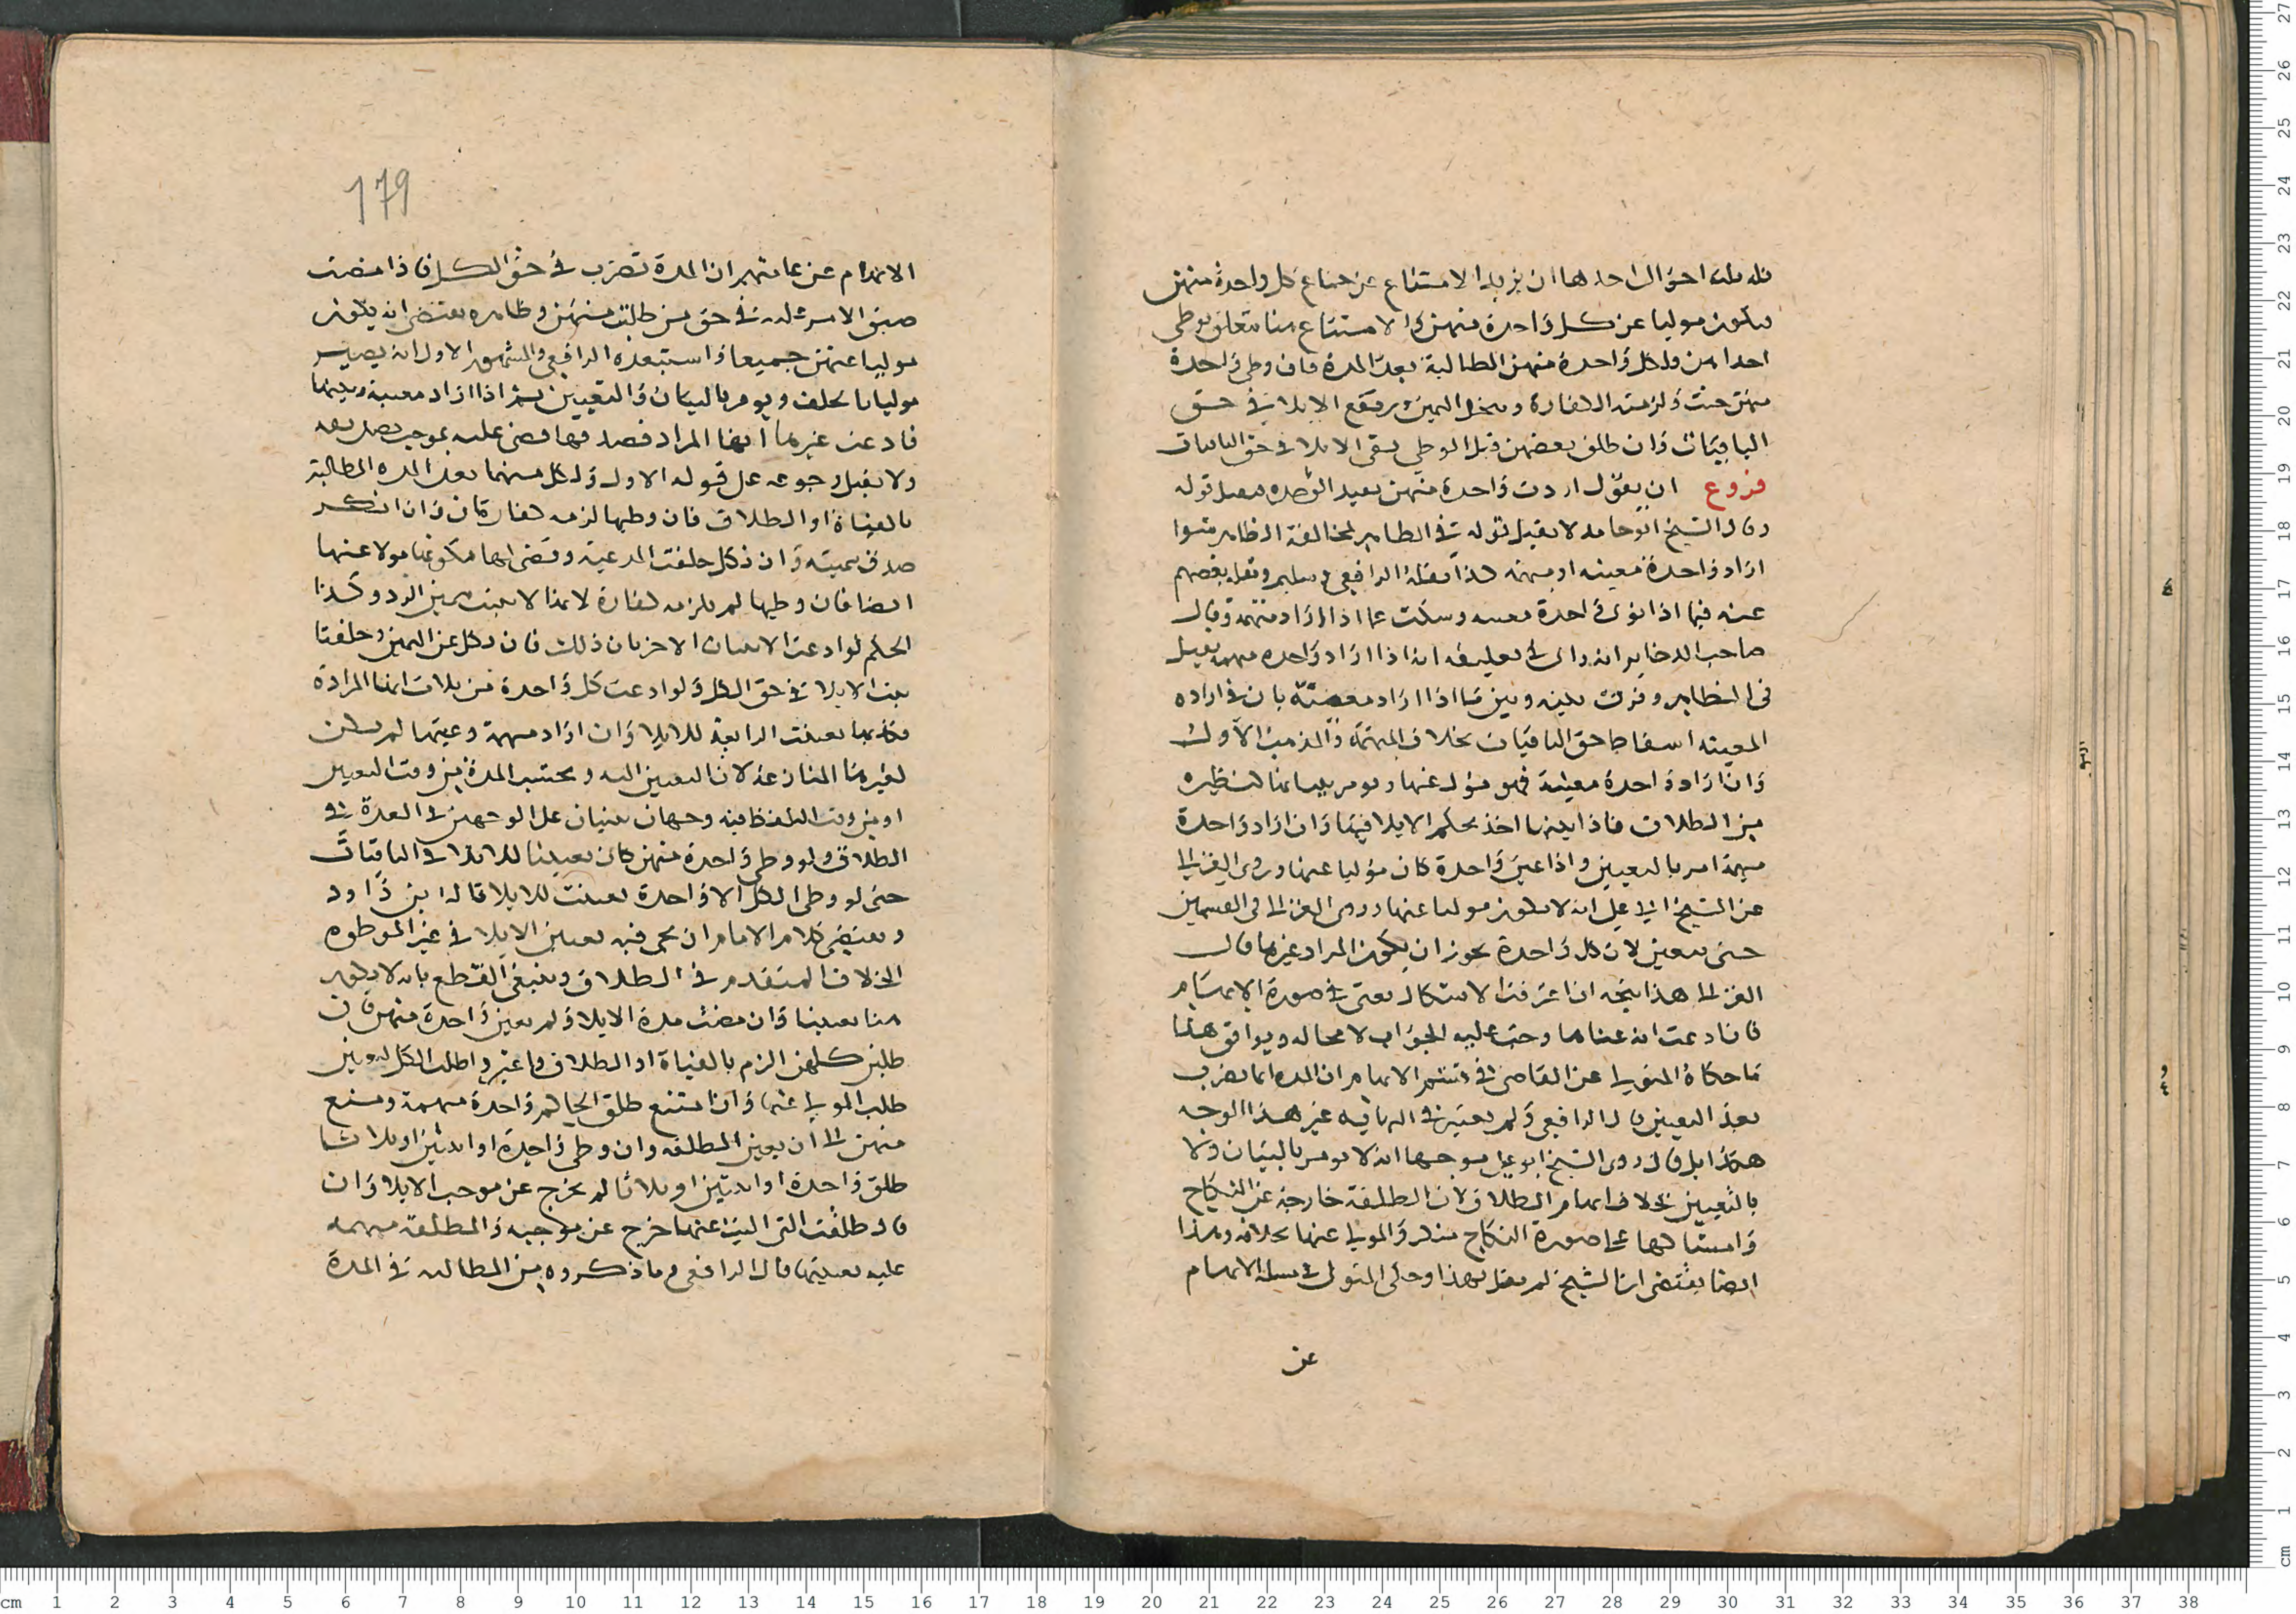 فله ثلاثة احوال احدها ان يريد الامتناع عن جماع كل واحدة منهن
فيكون موليا عن كل واحدة منهن لان الامتناع هنا متعلق بوطي
احداهن ولكل واحدة منهن المطالبة بعد المدة فان وطي واحدة
منهن حنث ولزمته الكفارة وينحل اليمين ويرتفع الايلا في حق
الباقيات وان طلق بعضهن قبل الوطي بقي الايلا في حق الباقيات
فروع ان يقول اردت واحدة منهن بعيد الوحده فيقبل قوله
وقال الشيخ ابو حامد لا يقبل قوله في الظاهر لمخالفة الظاهر سوا
اراد واحدة معينه او مبهمه كذا نقله الرافعي ونقله بعضهم
عنه فيما اذا نوى واحدة معينه وسكت عما اذا اراد مبهمة وقال
صاحب الدخاير انه راى في تعليقه انه اذا اراد واحده مبهمه يقبل
في الظاهر وفرق بينه وبين ما اذا اراد معينة بان في اراده
المعينه اسقاط حق الباقيات بخلاف المبهمة والمذهب الاول
وان اراد واحدة معينة فهو مؤل عنها ويومر ببيانها كنظيره
من الطلاق فاذا بينها اخذ بحكم الايلا فيها وان اراد واحدة
مبهمة امر بالتعيين واذا عين واحدة كان موليا عنها وروى الغزالي
عن الشيخ ابي علي انه لا يكون موليا عنها وروى الغزالي في القسمين
حتى يتعين لان كل واحدة يجوز ان يكون المراد غيرها قال
الغزالي هذا يتجه اذا اعترفت الاشكال يعني في صورة الابهام
فان ادعت انه عناها وجب عليه الجواب لا محاله ويوافق هذا
ما حكاه المتولي عن القاضي في الابهام ان المده انما تضرب
بعد التعيين قال الرافعي ولم يعتبر في النهايه غير هذا الوجه
هكذا بل قال روى الشيخ ابو علي موجها انه لا يومر بالبيان ولا
بالتعيين بخلاف ابهام الطلاق لان المطلقة خارجة عن النكاح
وامساكها على صورة النكاح منكر والمولى عنها بخلافه وهذا
ايضا يقتضي ان الشيخ لم يقل بهذا وحكى المتولي في مسله الابهام
عن
179
الابهام عن عامتهم ان المدة تضرب في حق الكل فاذا مضت
ضيق الامر عليه في حق من طالبت منهن وظاهره يقتضي انه يكون
موليا عنهن جميعا واستبعده الرافعي والمشهور الاول انه يصير
موليا يحلف ويومر بالبيان والتعيين ثم اذا اراد معينة وبينها
فادعت غيرها انها المراد فصدقها قضى عليه بموجب تصديقه
ولا يقبل رجوعه عن قوله الاول ولكل منهما بعد المده المطالبة
بالفياة او الطلاق فان وطيها لزمه كفارتان وان انكر
صدق بيمينه وان نكل حلفت المدعية وقضى لها بكونها مولا عنها
ايضا فان وطيها لم يلزمه كفارة لانها لا تثبت بيمين الرد وكذا
الحكم لو ادعت الاثنتان الاخريان ذلك فان نكل عن اليمين وحلفتا
ثبت الايلا في حق الكل ولو ادعت كل واحدة من ثلاث انها المرادة
فكذبها تعينت الرابعة للايلا وان اراد مبهمة وعينها لم يكن
لغيرها المنازعة لان التعيين اليه ويحتسب المدة من وقت التعيين
او من وقت اللفظ فيه وجهان يبنيان على الوجهين في العدة في
الطلاق ولو وطي واحدة منهن كان تعيينا للايلا في الباقيات
حتى لو وطي الكل الا واحدة تعينت للايلا قاله ابن داود
ويقتضي كلام الامام ان يجي فيه تعيين الايلا في غير الموطوه
الخلاف المتقدم في الطلاق وينبغي القطع بانه لا يكون
هنا تعيينا وان مضت مدة الايلا ولم يعين واحدة منهن فان
طلبن كلهن الزم بالفياة او الطلاق وانما اعتبر طلب الكل ليتعين
طلب المولى عنها وان امتنع طلق الحاكم واحدة مبهمة ومنع
منهن الى ان يعين المطلقه وان وطي واحدة او اثنتين او ثلاثا
طلق واحدة او اثنتين او ثلاثا لم يخرج عن موجب الايلا وان
قال طلقت التي اليت عنها خرج عن موجبه والمطلقة مبهمه
عليه تعيينها قال الرافعي وما ذكروه من المطالبه في المدة